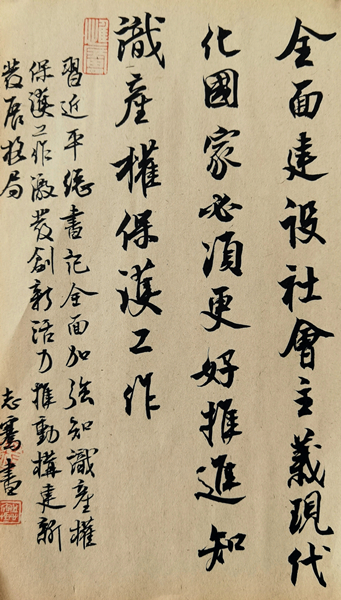 全面建设社會主義現代
化國家必須更好推進知
識産權保護工作
習近平總書記全面加强知識産權
保護工作激發創新活力推動構建新
發展格局
志騫書